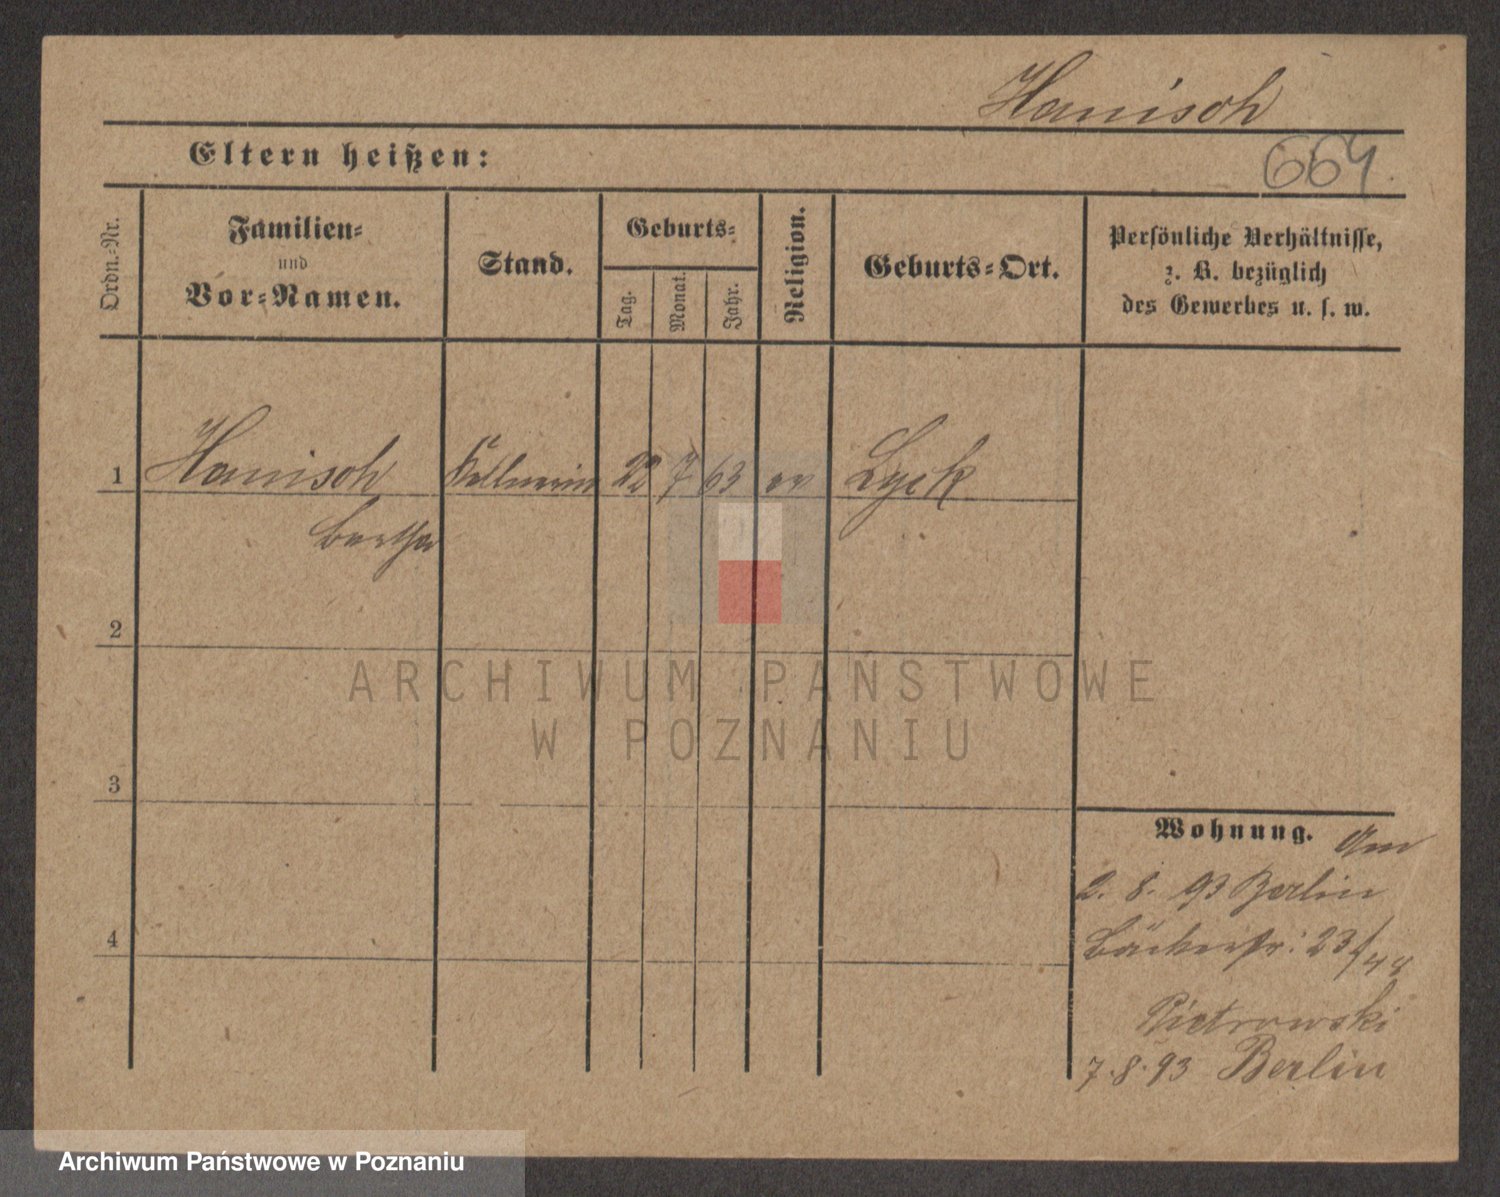 Hanisch
Eltern heißen:
664
Ordn.-Nr.
Familien-
und
Vor-Namen.
Stand.
Geburts-
Tag.
Monat.
Jahr.
Religion.
Geburts-Ort.
Persönliche Verhältnisse,
z. B. bezüglich
des Gewerbes u. s. w.
1 Hanisch Kellnerin 22 7 63 ev Lyck
Bertha
2
ARCHIWUM PAŃSTWOWE
W POZNANIU
3
Wohnung. Am
2. 8. 93 Berlin
4
Bäckerstr: 23/
Pietrowski
7.8.93 Berlin
Archiwum Państwowe w Poznaniu